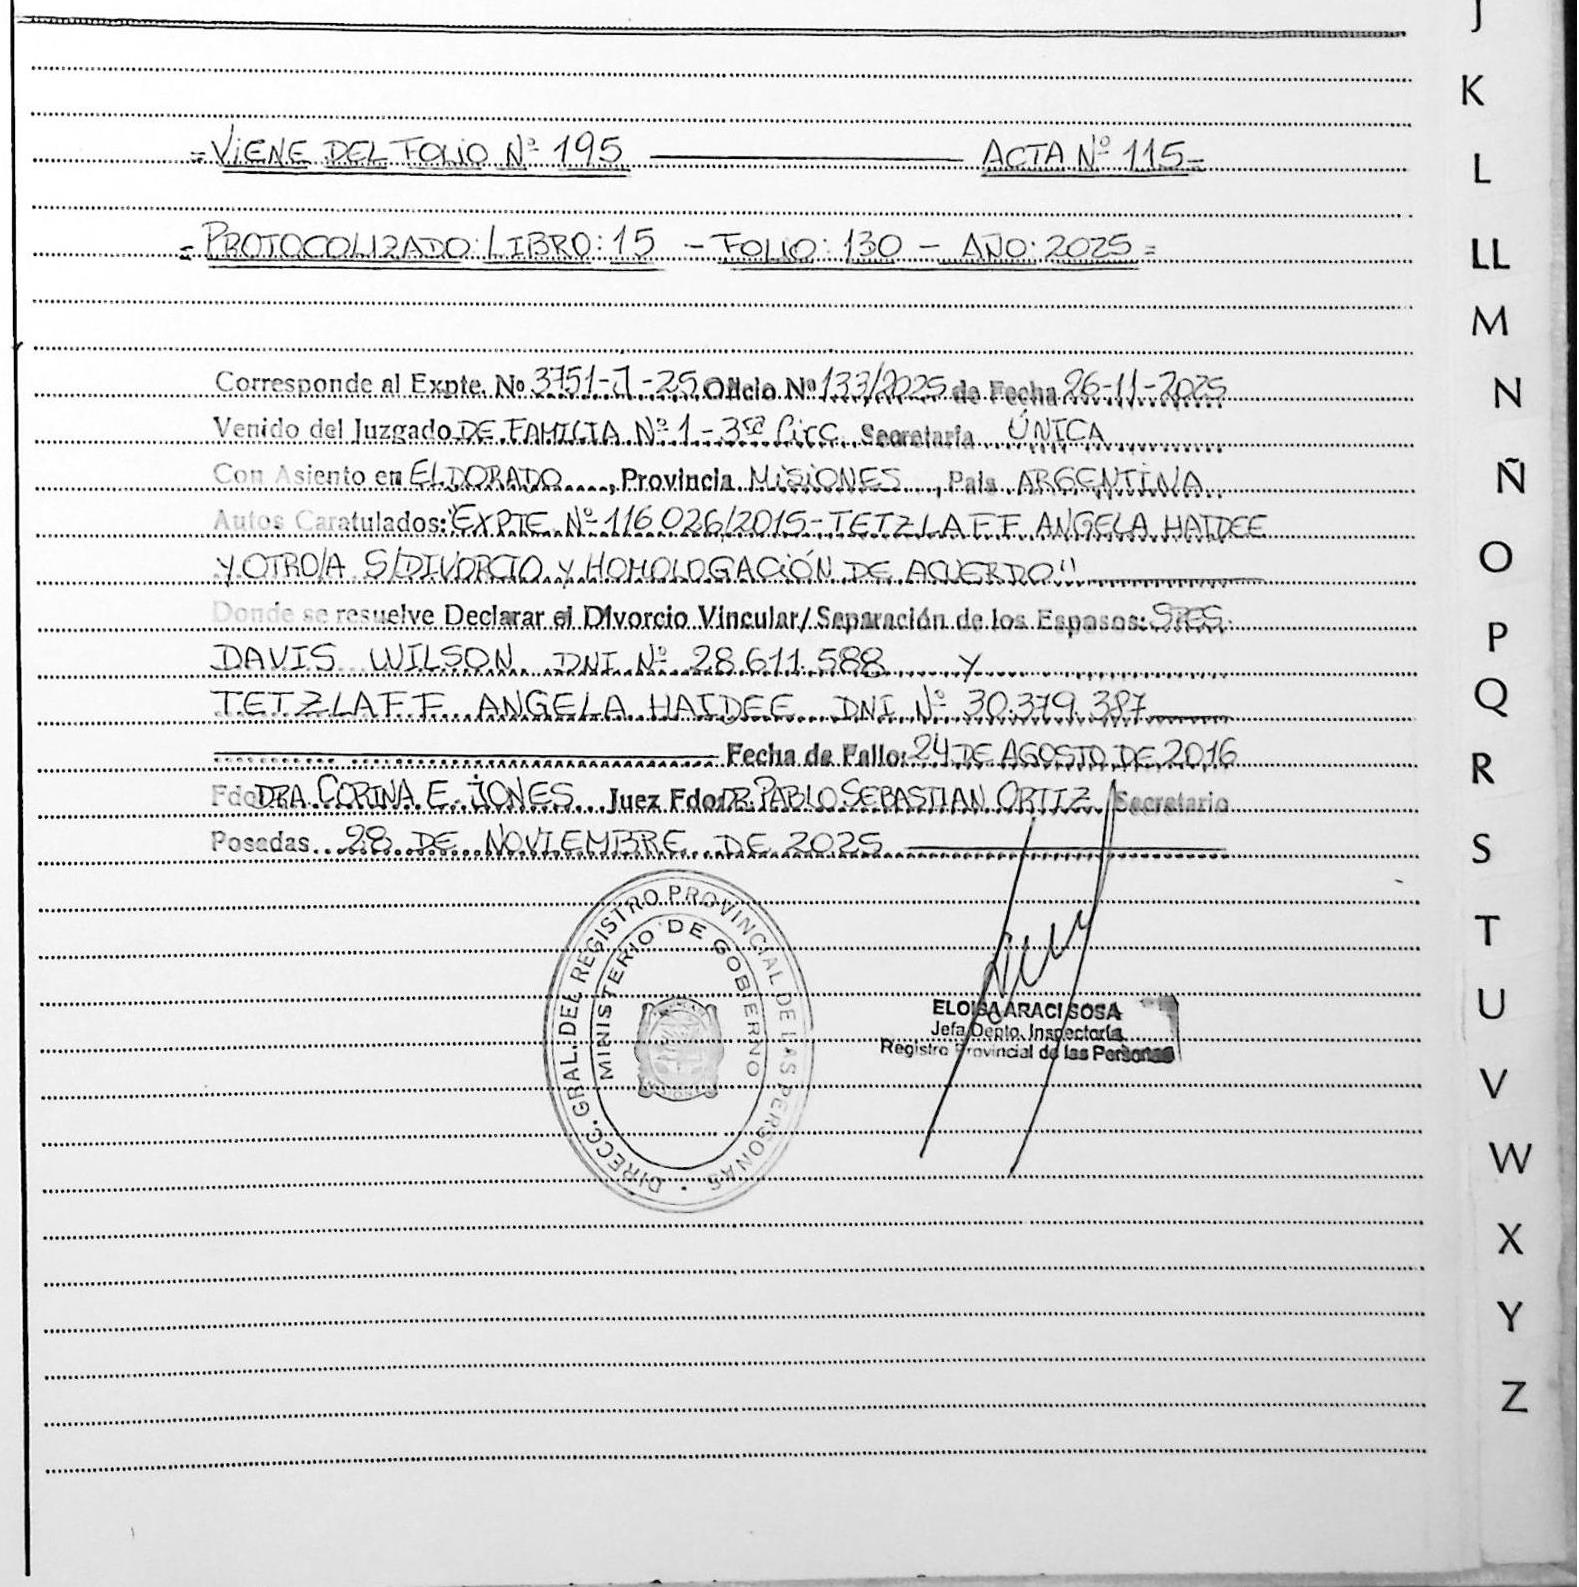 =VIENE DEL FOLIO Nº 195 ACTA Nº 115=
=PROTOCOLIZADO: LIBRO: 15 - FOLIO: 130 - AÑO: 2025=
Corresponde al Expte. Nº 3751-J-25 Oficio Nº 133/2025 de Fecha 26-11-2025
Venido del Juzgado DE FAMILIA Nº 1 - 3ra Circ. Secretaría ÚNICA
Con Asiento en ELDORADO, Provincia MISIONES, País ARGENTINA
Autos Caratulados: "EXPTE Nº 116026/2015-TETZLAFF ANGELA HAIDEE
Y OTRO/A S/DIVORCIO Y HOMOLOGACIÓN DE ACUERDO"
Donde se resuelve Declarar el Divorcio Vincular/Separación de los Esposos:
DAVIS WILSON DNI Nº 28.611.588 Y
TETZLAFF ANGELA HAIDEE DNI Nº 30.379.387
Fecha de Fallo: 24 DE AGOSTO DE 2016
Fdo DRA. CORINA E. JONES Juez Fdo: DR. PABLO SEBASTIAN ORTIZ Secretario
Posadas 28 DE NOVIEMBRE DE 2025
DIRECC. GRAL. DEL REGISTRO PROVINCIAL DE LAS PERSONAS
MINISTERIO DE GOBIERNO
ELOISA ARACI SOSA
Jefa Depto. Inspectoría
Registro Provincial de las Personas
J
K
L
LL
M
N
Ñ
O
P
Q
R
S
T
U
V
W
X
Y
Z